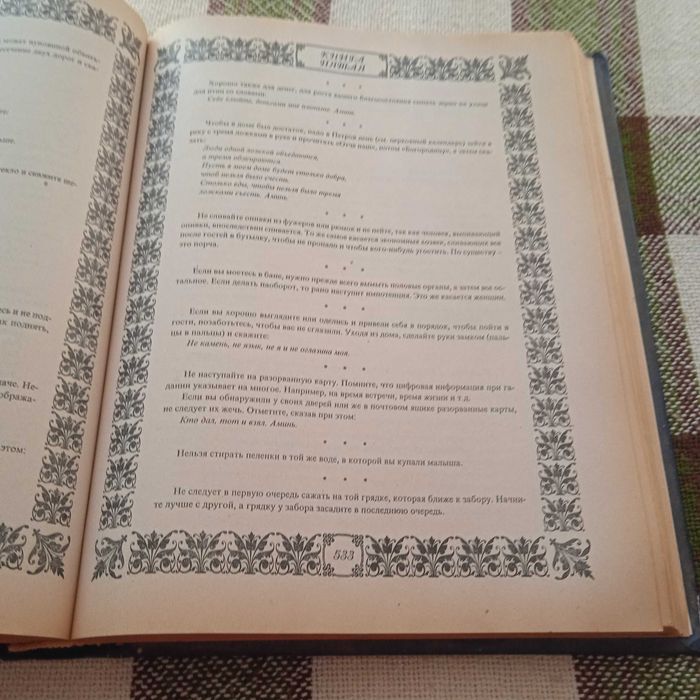 может пуповиной обвить-
сечение двух дорог и ска-
текло и скажите ше-
есь и не под-
их поднять,
наче. Не-
ображе-
этом:
КНИГА
Хорошо также для денег, для роста вашего благосостояния сыпать зерно на улице
для птиц со словами:
* * *
Чтобы в доме был достаток, надо в Петров день (см. церковный календарь) зайти в
реку с тремя ложками в руке и прочитать «Отче наш», потом «Богородицу», а затем ска-
зать:
Люди одной ложкой объедаются,
а тремя обогораются.
Пусть в моем доме будет столько добра,
чтоб нельзя было счесть.
Столько еды, чтобы нельзя было тремя
ложками съесть. Аминь.
* * *
Не сливайте опивки из фужеров или рюмок и не пейте, так как человек, выпивающий
опивки, впоследствии спивается. То же самое касается экономных хозяек, сливающих все
после гостей в бутылку, чтобы не пропало и чтобы кого-нибудь угостить. По существу –
это порча.
* * *
Если вы моетесь в бане, нужно прежде всего вымыть половые органы, а затем все ос-
тальное. Если делать наоборот, то рано наступит импотенция. Это же касается женщин.
* * *
Если вы хорошо выглядите или оделись и привели себя в порядок, чтобы пойти в
гости, позаботьтесь, чтобы вас не сглазили. Уходя из дома, сделайте руки замком (паль-
цы в пальцы) и скажите:
Не камень, не язык, не я и не оглазина моя.
* * *
Не наступайте на разорванную карту. Помните, что цифровая информация при га-
дании указывает на многое. Например, на время встречи, время жизни и т.д.
Если вы обнаружили у своих дверей или же в почтовом ящике разорванные карты,
не следует их жечь. Отметите, сказав при этом:
Кто дал, тот и взял. Аминь.
* * *
Нельзя стирать пеленки в той же воде, в которой вы купали малыша.
* * *
Не следует в первую очередь сажать на той грядке, которая ближе к забору. Начни-
те лучше с другой, а грядку у забора засадите в последнюю очередь.
533